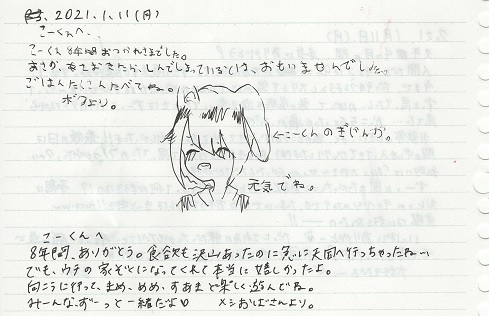 2021.1.11(月)
こーくんへ、
こーくん8年間おつかれさまでした。
あさが、きておきたら、しんでしまっているとは、おもいませんでした。
ごはんたくさんたべてね。
ボクより。
←こーくんのぎじんか。
元気でね。
こーくんへ
8年間、ありがとう。食欲も沢山あったのに急に天国へ行っちゃったね…
でも、ウチの家ぞくになってくれて本当に嬉しかったよ。
向こうに行って、まめ、めめ、すあまと楽しく遊んでね。
みーんな、ずーっと一緒だよ♡ メシおばさんより。